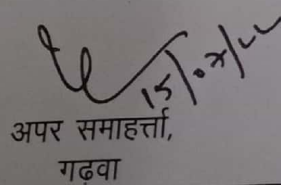 15/07/22
अपर समाहर्त्ता,
गढ़वा